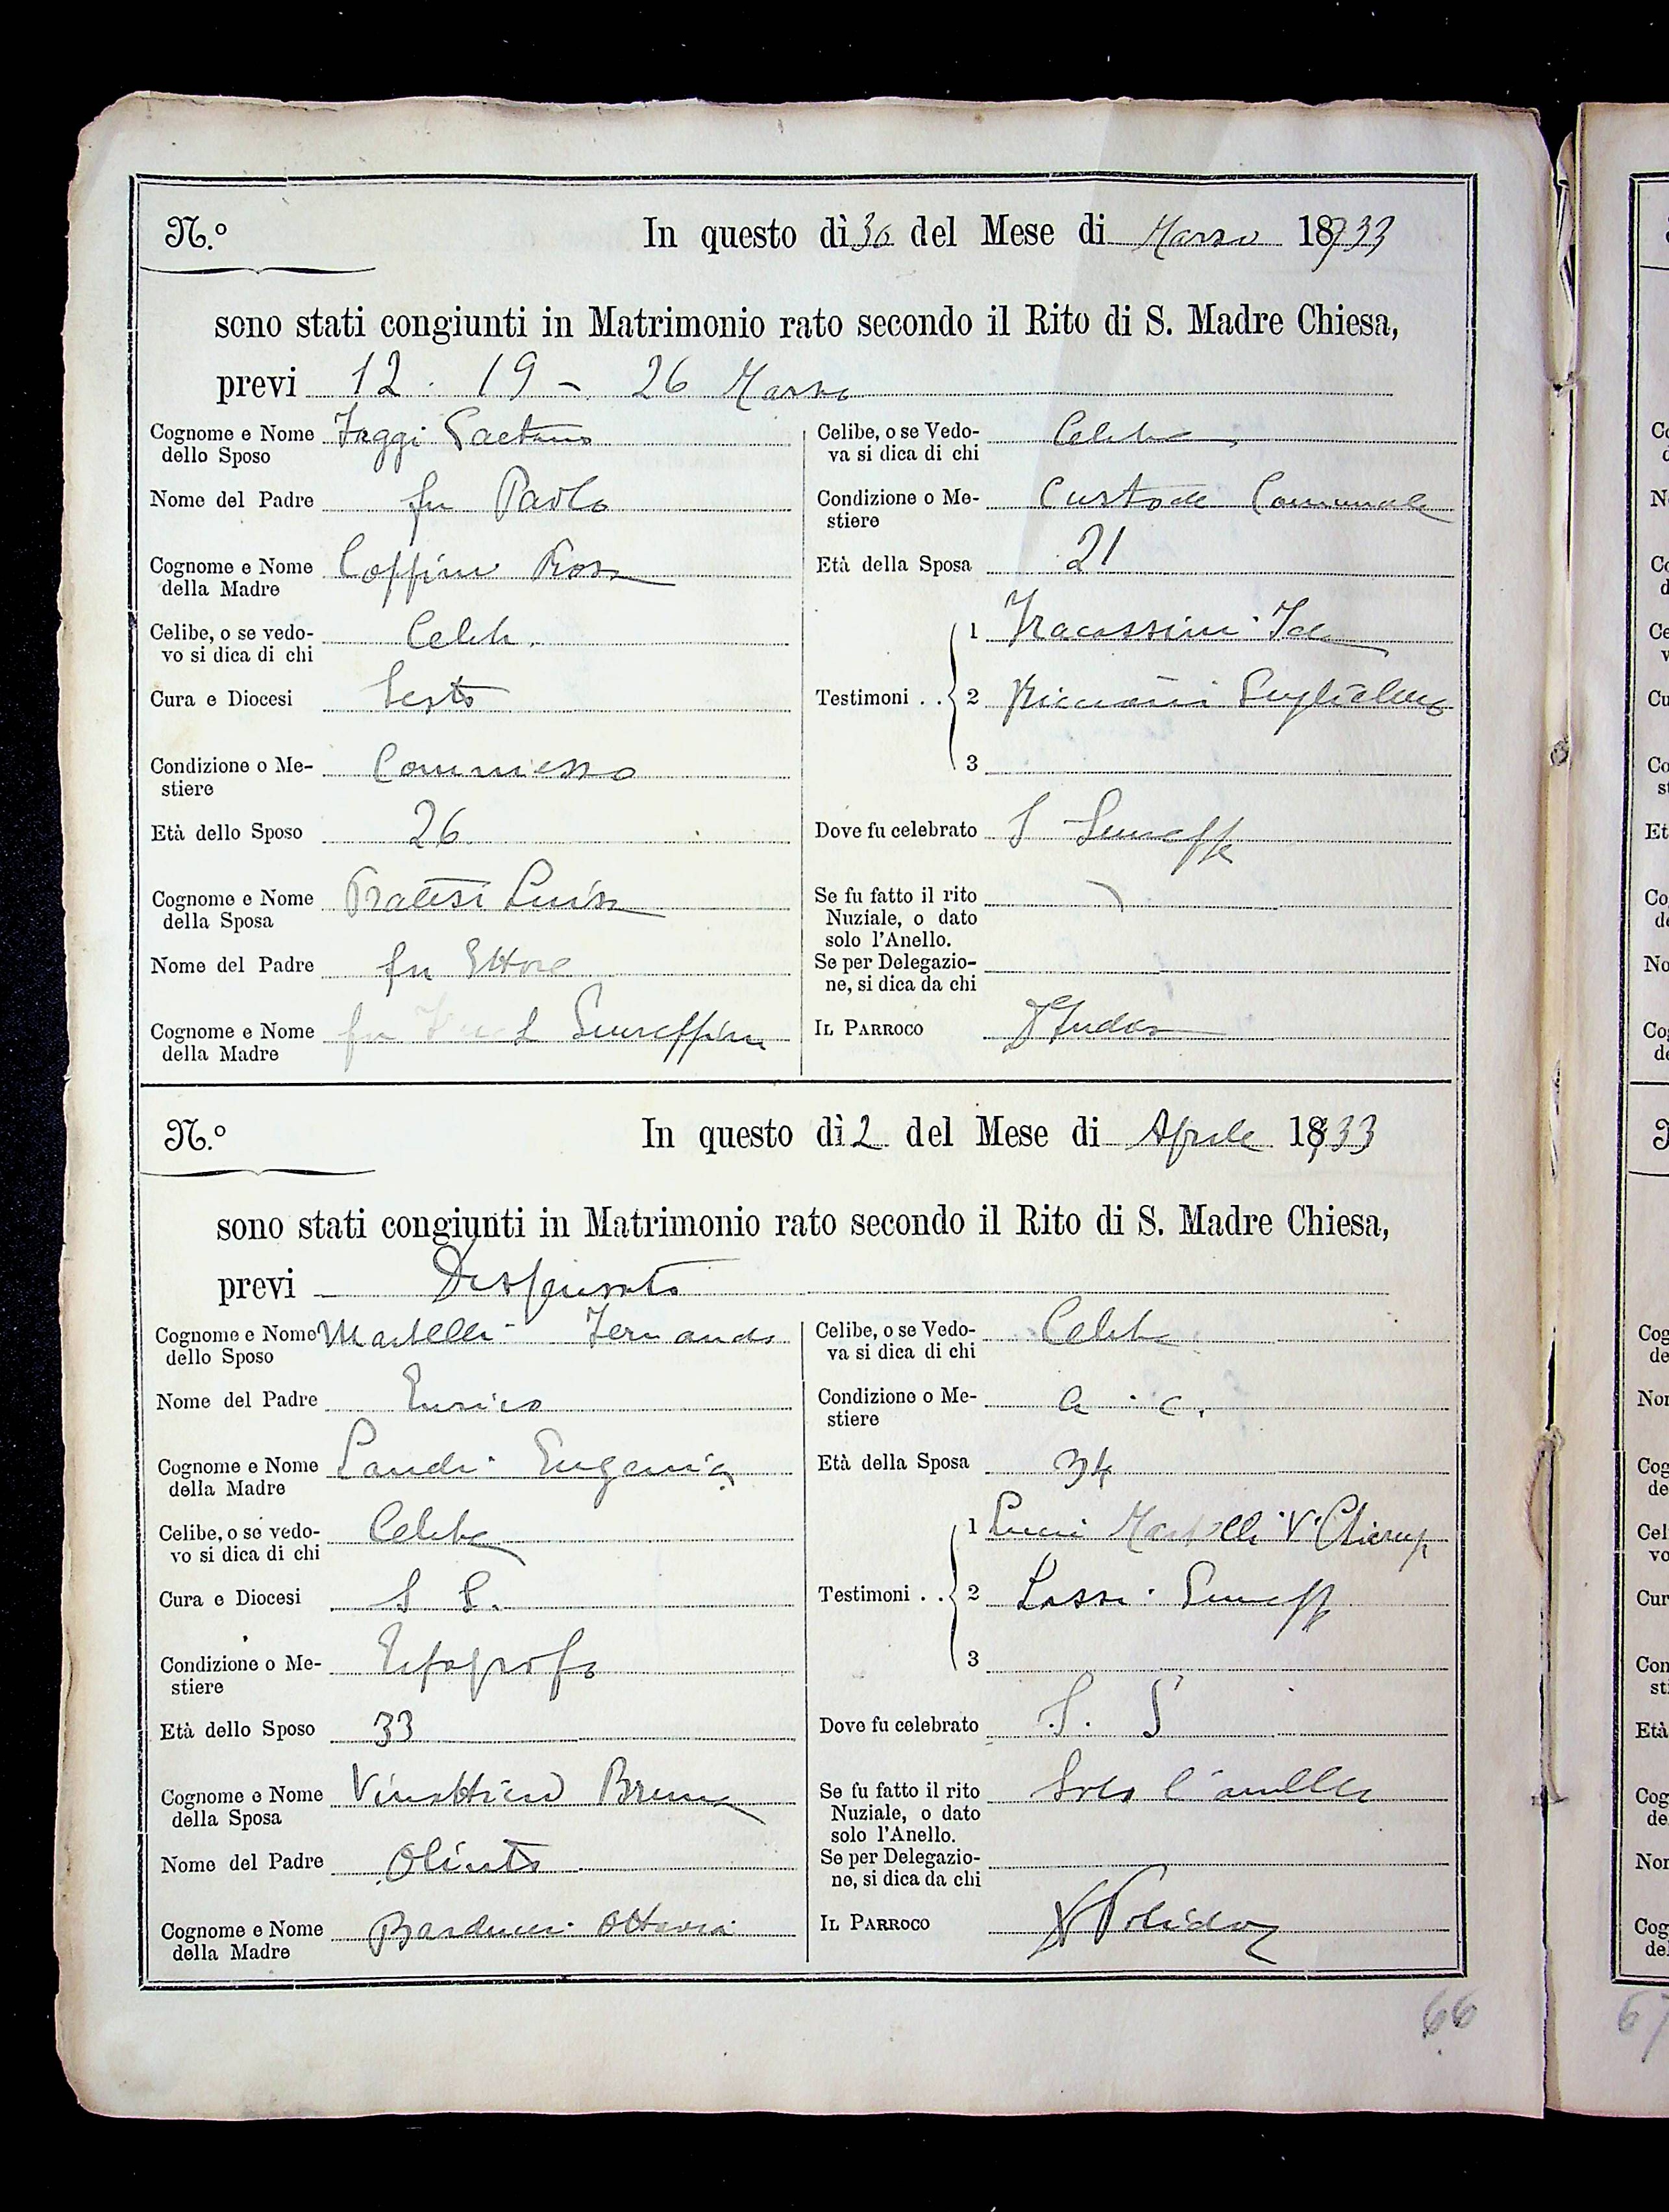 N.º
In questo dì 30 del Mese di Marzo 1933
sono stati congiunti in Matrimonio rato secondo il Rito di S. Madre Chiesa,
previ 12 . 19 - 26 Marzo
Cognome e Nome dello Sposo Faggi Gaetano
Nome del Padre fu Paolo
Cognome e Nome della Madre Coppini Rosa
Celibe, o se vedo-
vo si dica di chi Celibe
Cura e Diocesi Sesto
Condizione o Me-
stiere Commesso
Età dello Sposo 26
Cognome e Nome della Sposa Pratesi Luisa
Nome del Padre fu Ettore
Cognome e Nome della Madre fu Giuseppina
Celibe, o se Vedo-
va si dica di chi Celibe
Condizione o Me-
stiere Custode Comunale
Età della Sposa 21
Testimoni . .
1 Fracassini Ida
2 Guglielmo
3
Dove fu celebrato S Giuseppe
Se fu fatto il rito
Nuziale, o dato
solo l'Anello.
Se per Delegazio-
ne, si dica da chi
Il Parroco
N.º
In questo dì 2 del Mese di Aprile 1933
sono stati congiunti in Matrimonio rato secondo il Rito di S. Madre Chiesa,
previ Dispensato
Cognome e Nome dello Sposo Martelli Fernando
Nome del Padre Enrico
Cognome e Nome della Madre Landi Eugenia
Celibe, o se vedo-
vo si dica di chi Celibe
Cura e Diocesi S G.
Condizione o Me-
stiere Tipografo
Età dello Sposo 33
Cognome e Nome della Sposa Vinattieri Bruna
Nome del Padre Olinto
Cognome e Nome della Madre Barducci Ottavia
Celibe, o se Vedo-
va si dica di chi Celibe
Condizione o Me-
stiere a c.
Età della Sposa 34
Testimoni . .
1 Martelli V.
2 Giusepp
3
Dove fu celebrato S. G
Se fu fatto il rito
Nuziale, o dato
solo l'Anello. Solo l'anello
Se per Delegazio-
ne, si dica da chi
Il Parroco
66
67